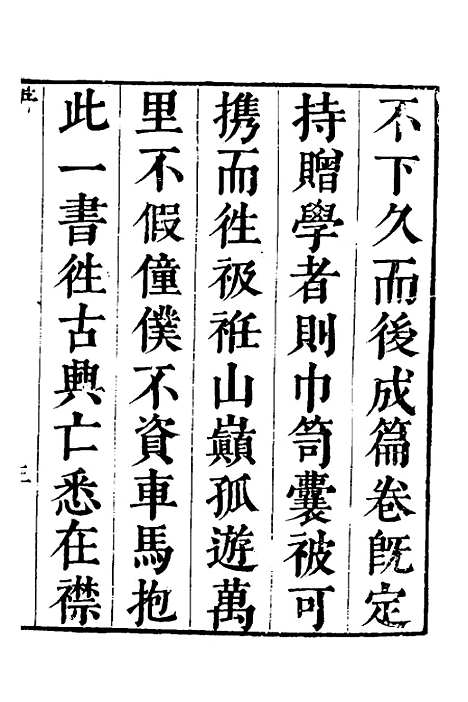 不下久而後成篇卷旣定
持贈學者則巾笥囊被可
携而徃衱袵山巔孤遊萬
里不假僮僕不資車馬抱
此一書徃古興亡悉在襟
三